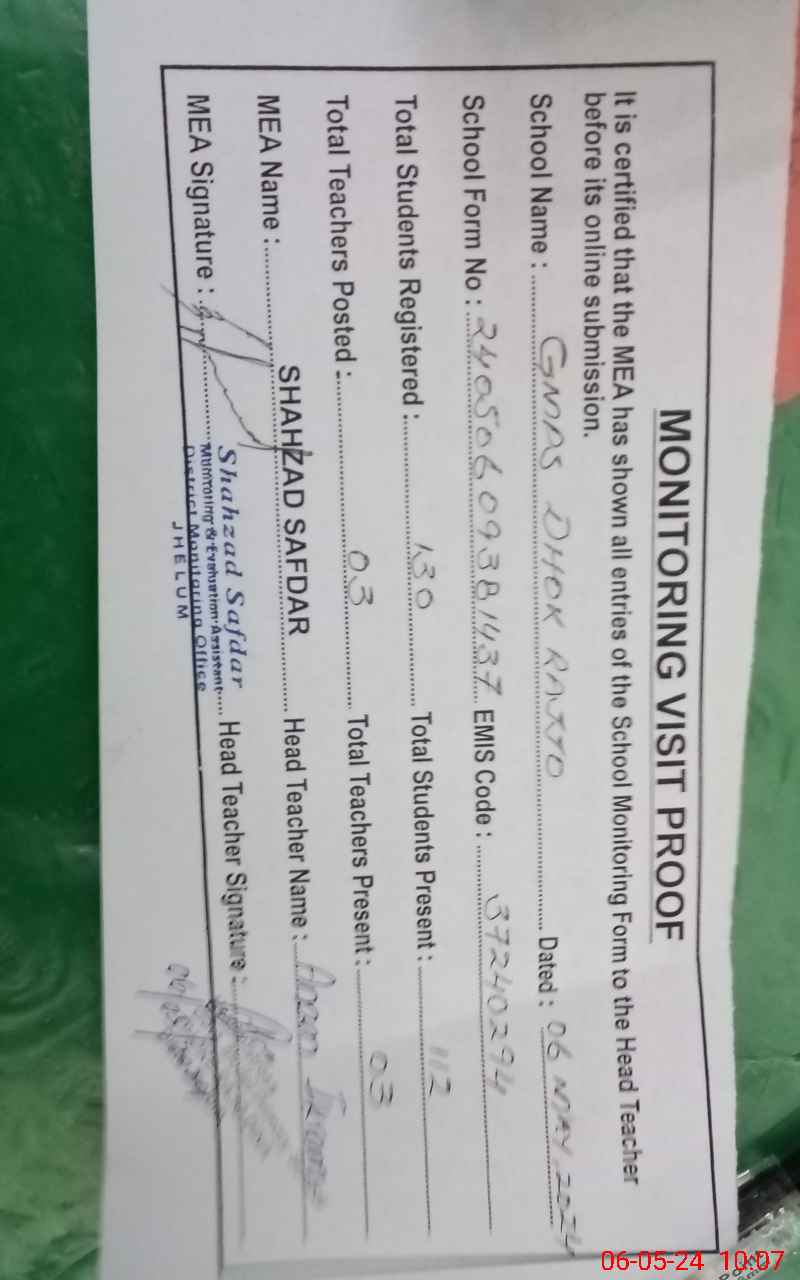 MONITORING VISIT PROOF
It is certified that the MEA has shown all entries of the School Monitoring Form to the Head Teacher
before its online submission.
School Name : GMPS DHOK RAJJO Dated : 06 MAY, 2024
School Form No : 24050609381437 EMIS Code : 37240294
Total Students Registered : 130 Total Students Present : 112
Total Teachers Posted : 03 Total Teachers Present : 03
MEA Name : SHAHZAD SAFDAR Head Teacher Name :
MEA Signature : Head Teacher Signature :
Shahzad Safdar
Monitoring & Evaluation Assistant
District Monitoring Office
JHELUM
06-05-24 10:07